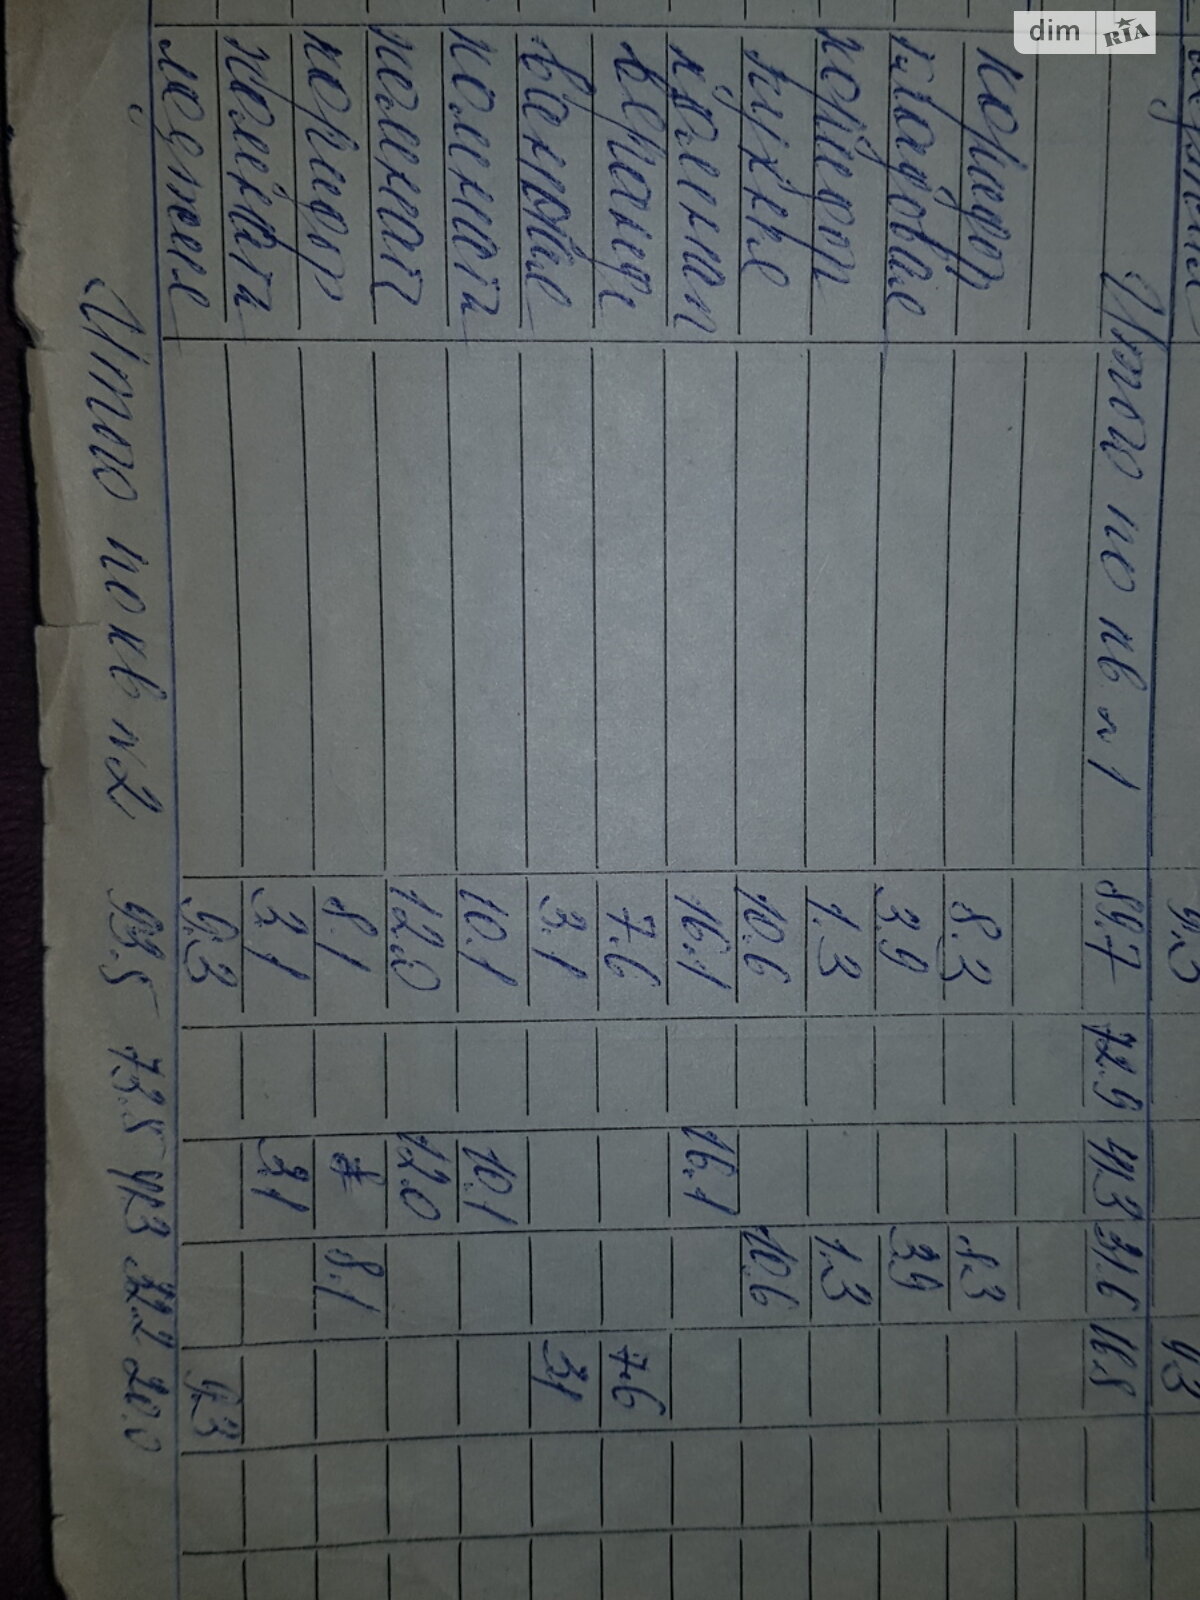 dim RIA
9.3 9.3
Итого по кв n 1 89.7 72.9 41.3 31.6 16.8
коридор 8.3 8.3
кладовая 3.9 3.9
коридор 1.3 1.3
кухня 10.6 10.6
комнат 16.1 16.1
веранда 7.6 7.6
3.1 3.1
комната 10.1 10.1
комната 12.0 12.0
коридор 8.1 8.1
комната 3.1 3.1
9.3 9.3
Итого по кв n2 93.5 73.5 41.3 32.2 20.0